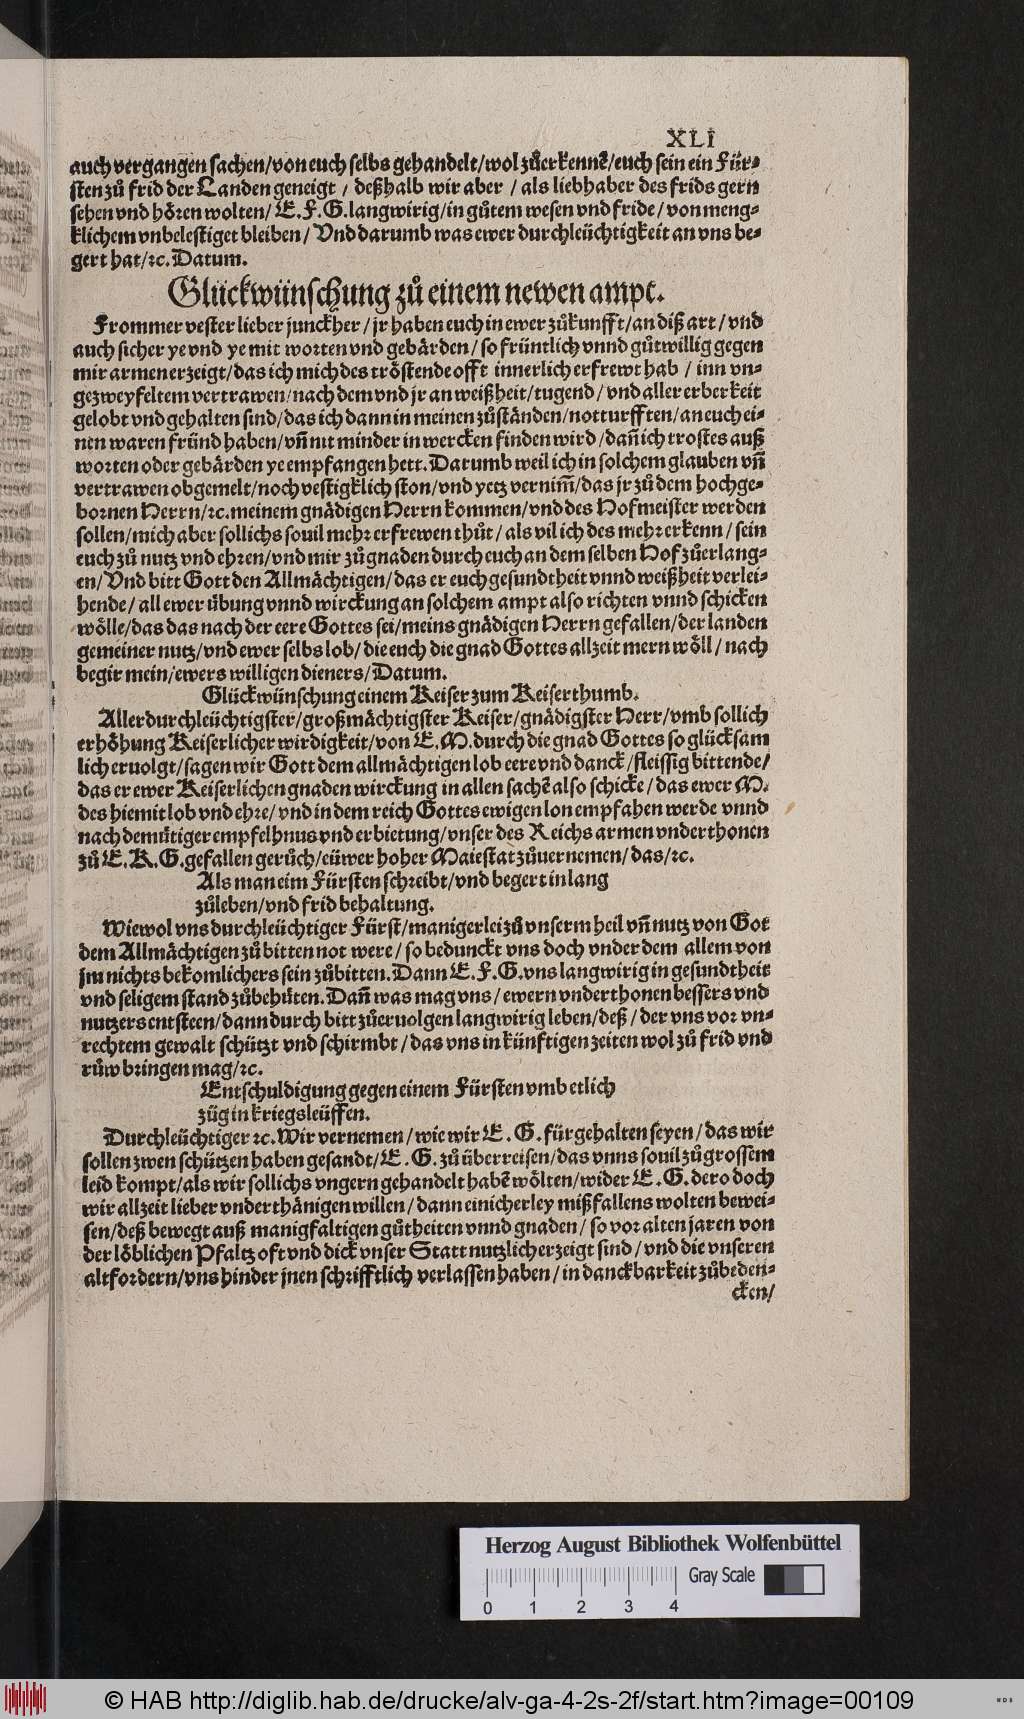 XLI
auch vergangen sachen/von euch selbs gehandelt/wol zůerkennẽ/euch sein ein Für-
sten zů frid der Landen geneigt / deßhalb wir aber / als liebhaber des frids gern
sehen vnd hören wolten/ E. F. G. langwirig/in gůtem wesen vnd fride/ von meng-
klichem vnbelestiget bleiben/ Vnd darumb was ewer durchleüchtigkeit an vns be-
gert hat/ꝛc. Datum.
Glückwünschung zů einem newen ampt.
Frommer vester lieber junckher / jr haben euch in ewer zůkunfft/an diß art / vnd
auch sicher ye vnd ye mit worten vnd gebärden/ so früntlich vnnd gůtwillig gegen
mir armen erzeigt/das ich mich des tröstende offt innerlich erfrewt hab / inn vn-
gezweyfeltem vertrawen/nach dem vnd jr an weißheit/tugend / vnd aller erberkeit
gelobt vnd gehalten sind/das ich dann in meinen zůständen/notturfften/an euch ei-
nen waren fründ haben/vñ nit minder in wercken finden wird / dañ ich trostes auß
worten oder gebärden ye empfangen hett. Darumb weil ich in solchem glauben vñ
vertrawen obgemelt/noch vestigklich ston/vnd yetz vernim̃/das jr zů dem hochge-
bornen Herrn/ꝛc. meinem gnädigen Herrn kommen/vnd des Hofmeister werden
sollen/mich aber sollichs souil mehr erfrewen thůt/ als vil ich des mehr erkenn/ sein
euch zů nutz vnd ehren/vnd mir zů gnaden durch euch an dem selben Hof zůerlang-
en/ Vnd bitt Gott den Allmächtigen/das er euch gesundtheit vnnd weißheit verlei-
hende/ all ewer übung vnnd wirckung an solchem ampt also richten vnnd schicken
wölle/das das nach der eere Gottes sei/meins gnädigen Herrn gefallen/der landen
gemeiner nutz/vnd ewer selbs lob/die euch die gnad Gottes allzeit mern wöll / nach
begir mein/ewers willigen dieners/Datum.
Glückwünschung einem Keiser zum Keiserthumb.
Allerdurchleüchtigster/großmächtigster Keiser/gnädigster Herr/vmb sollich
erhöhung Keiserlicher wirdigkeit/von E. M. durch die gnad Gottes so glücksam
lich eruolgt/sagen wir Gott dem allmächtigen lob eere vnd danck/fleissig bittende/
das er ewer Keiserlichen gnaden wirckung in allen sachẽ also schicke/das ewer M.
des hiemit lob vnd ehre/vnd in dem reich Gottes ewigen lon empfahen werde vnnd
nach demütiger empfelhnus vnd erbietung/vnser des Reichs armen vnderthonen
zů E. K. G. gefallen gerůch/eüwer hoher Maiestat zůuernemen/das/ꝛc.
Als man eim Fürsten schreibt/vnd begert in lang
zůleben/vnd frid behaltung.
Wiewol vns durchleüchtiger Fürst/manigerlei zů vnserm heil vñ nutz von Got
dem Allmächtigen zů bitten not were/ so bedunckt vns doch vnder dem allem von
jm nichts bekomlichers sein zůbitten. Dann E. F. G. vns langwirig in gesundtheit
vnd seligem stand zůbehüten. Dañ was mag vns/ ewern vnderthonen bessers vnd
nutzers entsteen/dann durch bitt zůeruolgen langwirig leben/deß / der vns vor vn-
rechtem gewalt schützt vnd schirmbt/das vns in künftigen zeiten wol zů frid vnd
růw bringen mag/ꝛc.
Entschuldigung gegen einem Fürsten vmb etlich
züg in kriegsleüffen.
Durchleüchtiger ꝛc. Wir vernemen/wie wir E. G. fürgehalten seyen/das wir
sollen zwen schützen haben gesandt/E. G. zů überreisen/das vnns souil zů grossem
leid kompt/als wir sollichs vngern gehandelt habẽ wölten/wider E. G. dero doch
wir allzeit lieber vnderthänigen willen/dann einicherley mißfallens wolten bewei-
sen/deß bewegt auß manigfaltigen gůtheiten vnnd gnaden/ so vor alten jaren von
der löblichen Pfaltz oft vnd dick vnser Statt nutzlich erzeigt sind/vnd die vnseren
altfordern/vns hinder jnen schrifftlich verlassen haben/in danckbarkeit zůbeden-
cken/
Herzog August Bibliothek Wolfenbüttel
Gray Scale
0 1 2 3 4
© HAB http://diglib.hab.de/drucke/alv-ga-4-2s-2f/start.htm?image=00109
WDB